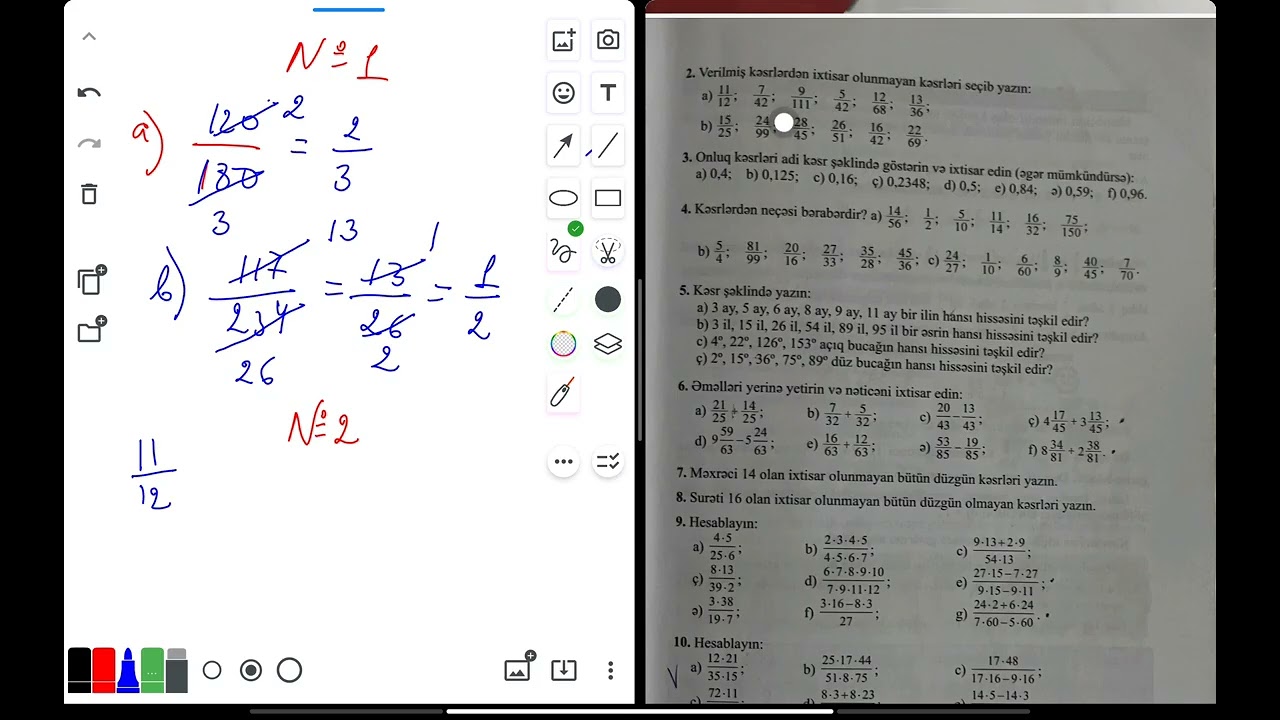 №1
a) 120 2 / 180 3 = 2/3
b) 117 13 / 234 26 = 13 1 / 26 2 = 1/2
№2
11/12
2. Verilmiş kəsrlərdən ixtisar olunmayan kəsrləri seçib yazın:
a) 11/12; 7/42; 9/111; 5/42; 12/68; 13/36;
b) 15/25; 24/99; 28/45; 26/51; 16/42; 22/69.
3. Onluq kəsrləri adi kəsr şəklində göstərin və ixtisar edin (əgər mümkündürsə):
a) 0,4; b) 0,125; c) 0,16; ç) 0,2348; d) 0,5; e) 0,84; ə) 0,59; f) 0,96.
4. Kəsrlərdən neçəsi bərabərdir? a) 14/56; 1/2; 5/10; 11/14; 16/32; 75/150;
b) 5/4; 81/99; 20/16; 27/33; 35/28; 45/36; c) 24/27; 1/10; 6/60; 8/9; 40/45; 7/70.
5. Kəsr şəklində yazın:
a) 3 ay, 5 ay, 6 ay, 8 ay, 9 ay, 11 ay bir ilin hansı hissəsini təşkil edir?
b) 3 il, 15 il, 26 il, 54 il, 89 il, 95 il bir əsrin hansı hissəsini təşkil edir?
c) 4º, 22º, 126º, 153º açıq bucağın hansı hissəsini təşkil edir?
ç) 2º, 15º, 36º, 75º, 89º düz bucağın hansı hissəsini təşkil edir?
6. Əməlləri yerinə yetirin və nəticəni ixtisar edin:
a) 21/25 + 14/25; b) 7/32 + 5/32; c) 20/43 − 13/43; ç) 4 17/45 + 3 13/45;
d) 9 59/63 − 5 24/63; e) 16/63 + 12/63; ə) 53/85 − 19/85; f) 8 34/81 + 2 38/81.
7. Məxrəci 14 olan ixtisar olunmayan bütün düzgün kəsrləri yazın.
8. Surəti 16 olan ixtisar olunmayan bütün düzgün olmayan kəsrləri yazın.
9. Hesablayın:
a) 4·5/25·6; b) 2·3·4·5/4·5·6·7; c) 9·13+2·9/54·13;
ç) 8·13/39·2; d) 6·7·8·9·10/7·9·11·12; e) 27·15−7·27/9·15−9·11;
ə) 3·38/19·7; f) 3·16−8·3/27; g) 24·2+6·24/7·60−5·60.
10. Hesablayın:
V a) 12·21/35·15; b) 25·17·44/51·8·75; c) 17·48/17·16−9·16;
72·11 8·3+8·23 14·5−14·3